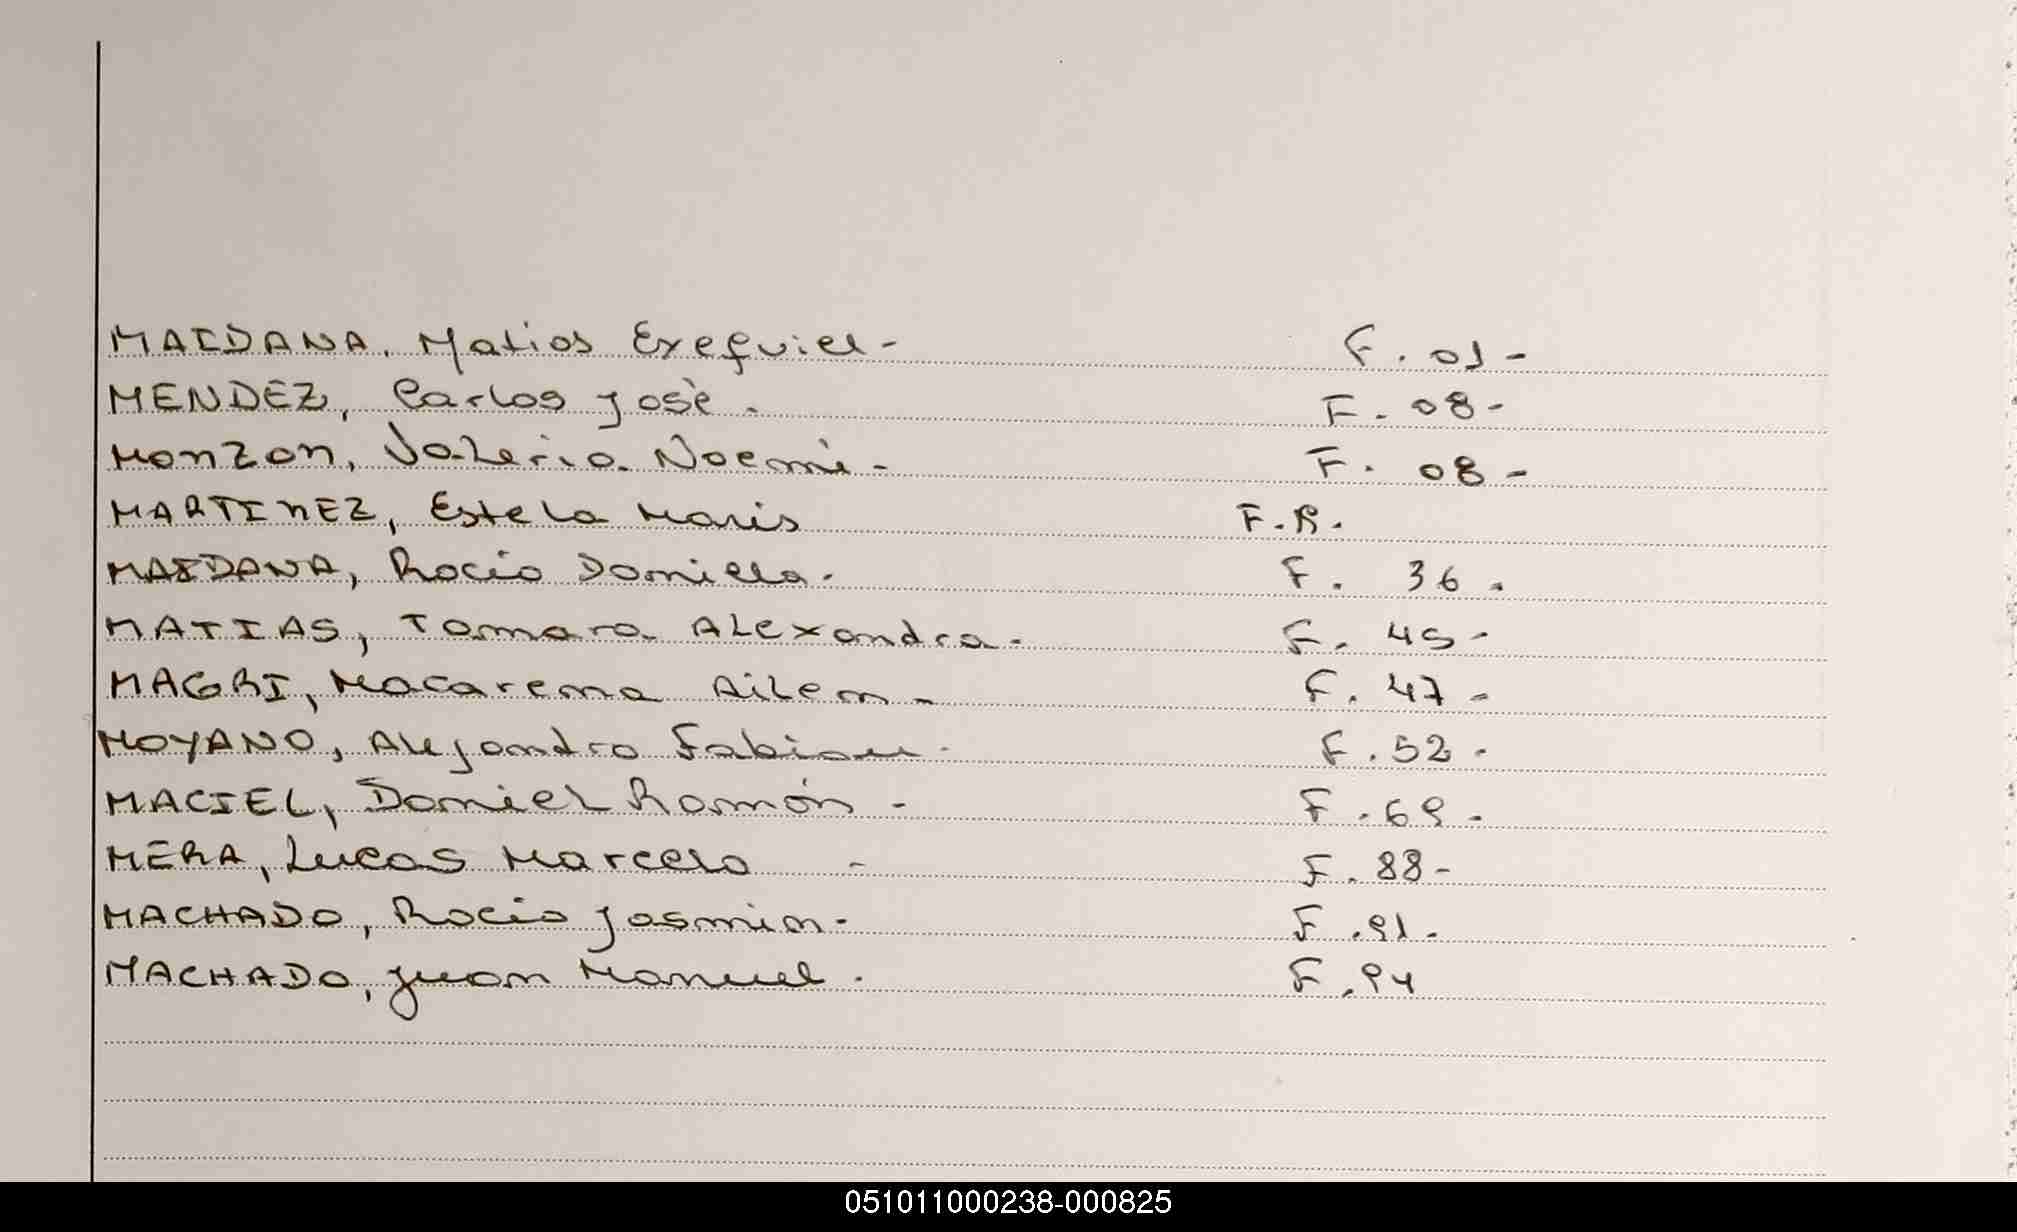 MAIDANA, Matias Exequiel - F. 01 -
MENDEZ, Carlos Josè. F. 08 -
MONZON, Valeria Noemì - F. 08 -
MARTINEZ, Estela Maris F.R.
MAIDANA, Rocio Daniela. F. 36.
MATIAS, Tamara Alexandra. F. 49 -
MAGRI, Macarena Ailen - F. 47 -
MOYANO, Alejandro Fabian. F. 52.
MACIEL, Daniel Ramón - F. 69.
MERA, Lucas Marcelo - F. 88 -
MACHADO, Rocio Jasmin. F. 91.
MACHADO, Juan Manuel. F. 94
051011000238-000825